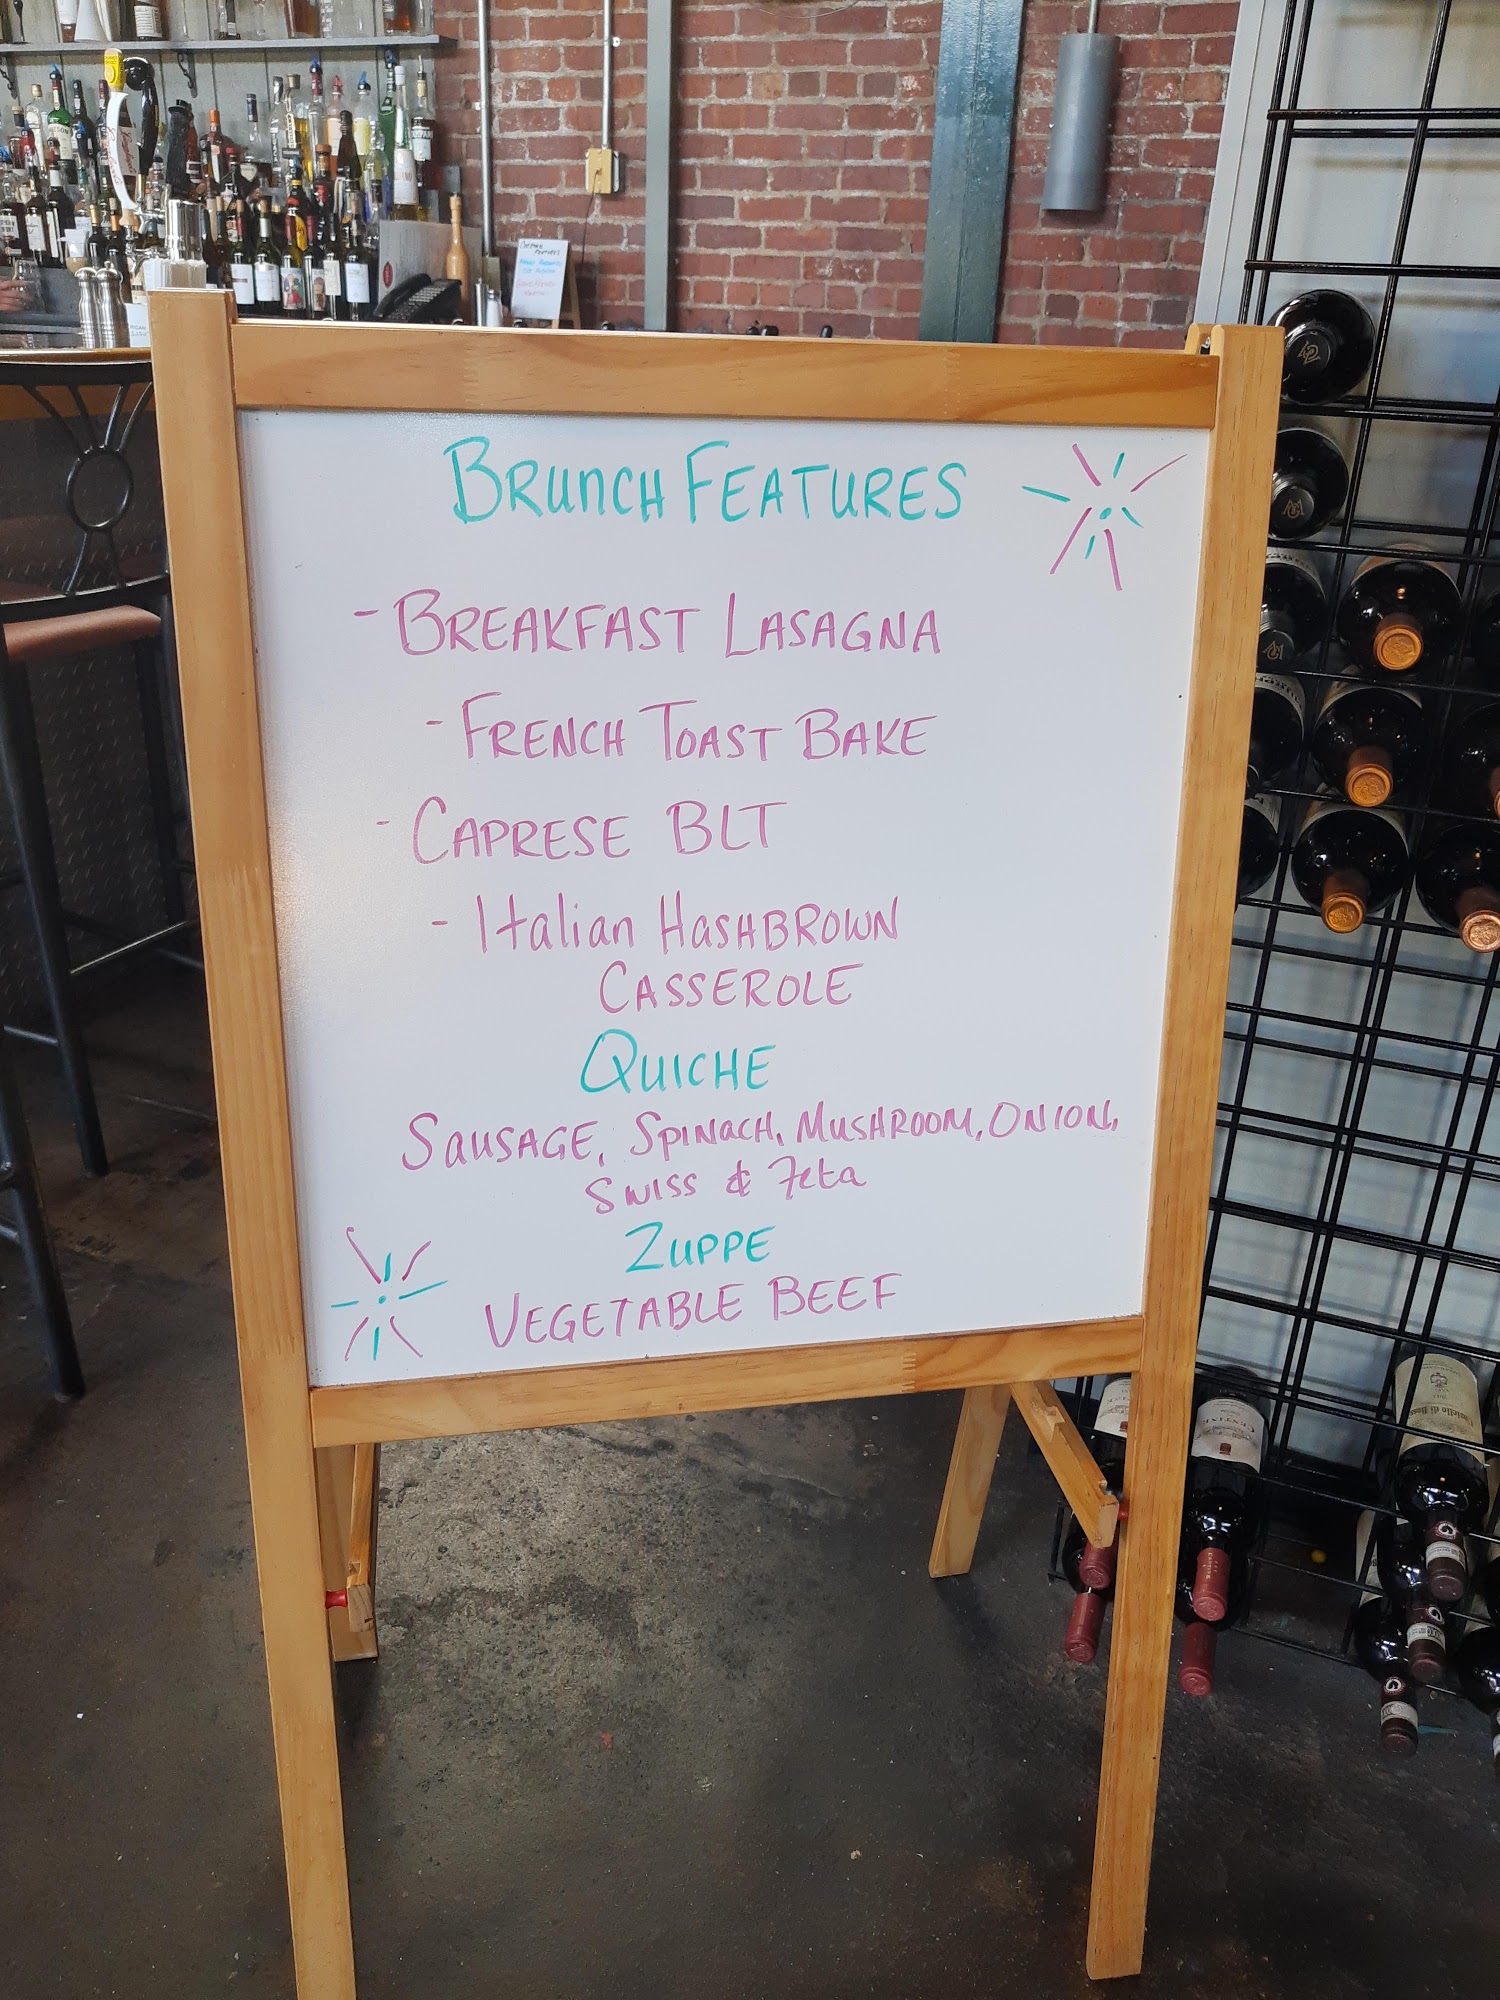 BRUNCH FEATURES
- BREAKFAST LASAGNA
- FRENCH TOAST BAKE
- CAPRESE BLT
- Italian HASHBROWN
CASSEROLE
QUICHE
SAUSAGE, SPINACH, MUSHROOM, ONION,
SWISS & Feta
ZUPPE
VEGETABLE BEEF